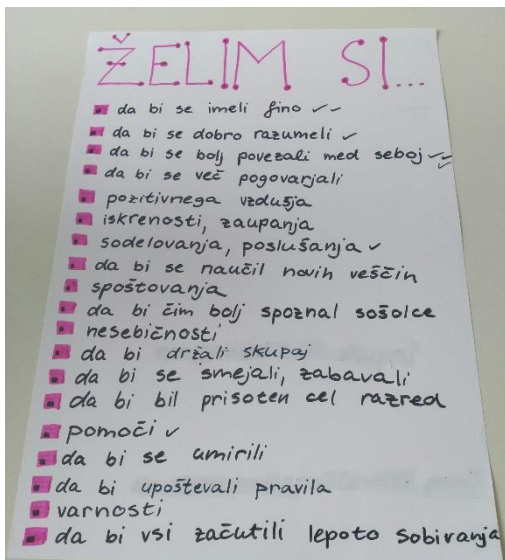 ŽELIM SI...
da bi se imeli fino ✓✓
da bi se dobro razumeli ✓
da bi se bolj povezali med seboj ✓✓
da bi se več pogovarjali
pozitivnega vzdušja
iskrenosti, zaupanja
sodelovanja, poslušanja ✓
da bi se naučil novih veščin
spoštovanja
da bi čim bolj spoznal sošolce
nesebičnosti
da bi držali skupaj
da bi se smejali, zabavali
da bi bil prisoten cel razred
pomoči ✓
da bi se umirili
da bi upoštevali pravila
varnosti
da bi vsi začutili lepoto sobivanja